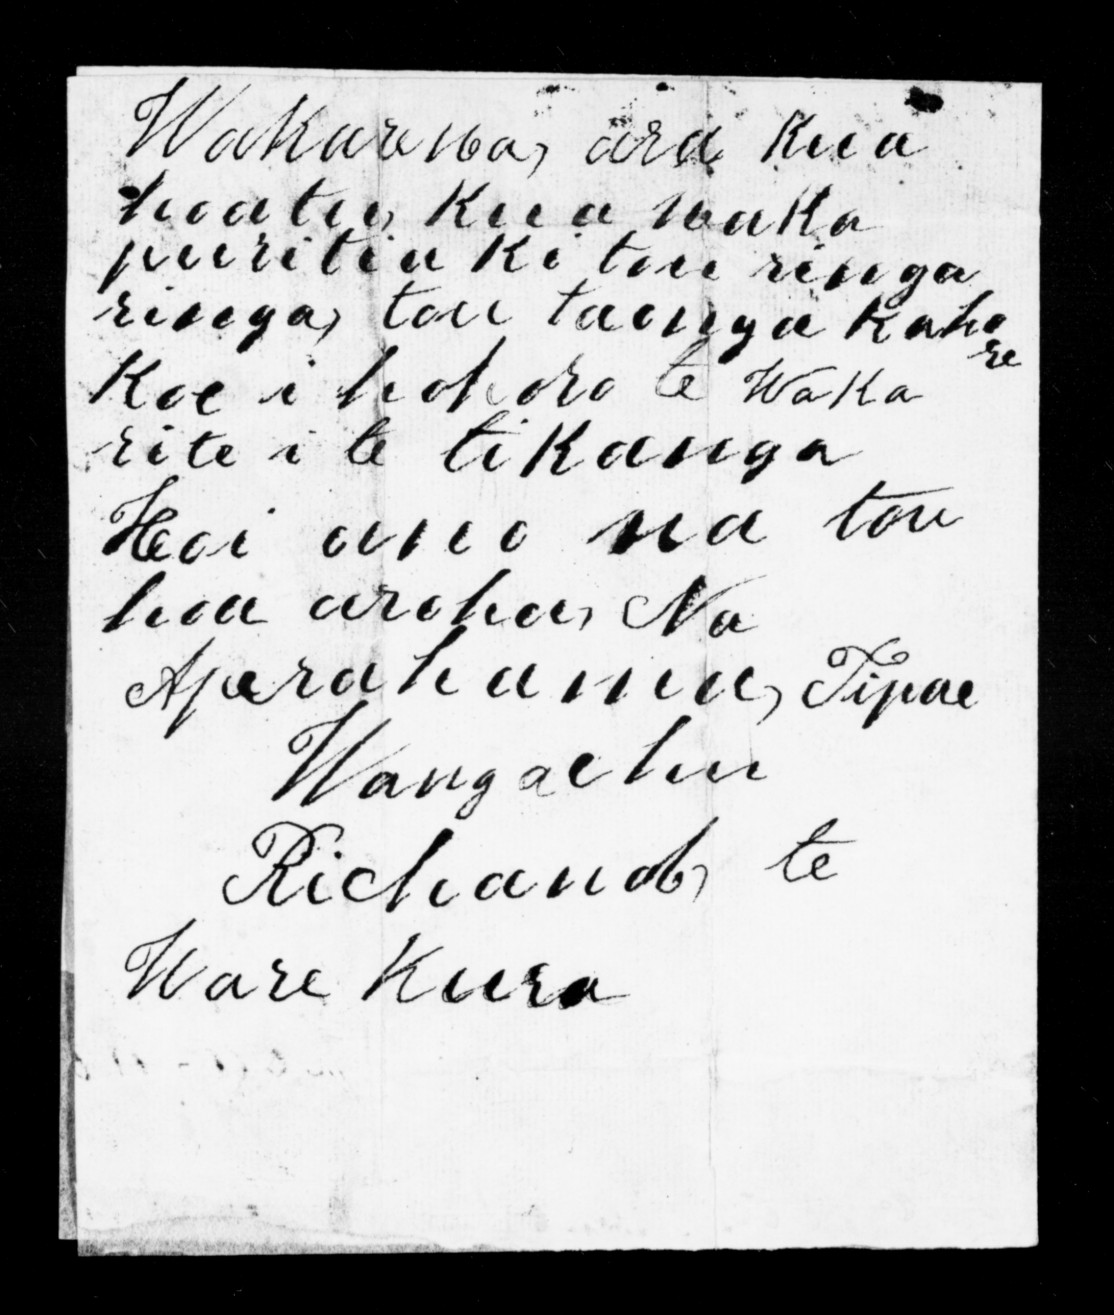 Wakarewa, ara kua
hoatu, kua waka
puritia ki tou ringa
ringa, tou taonga kahore
koe i hohoro te waka
rite i te tikanga
Heoi ano na tou
hoa aroha, Na
Aperahama, Tipae
Wangaehu
Richand, te
Ware Kura